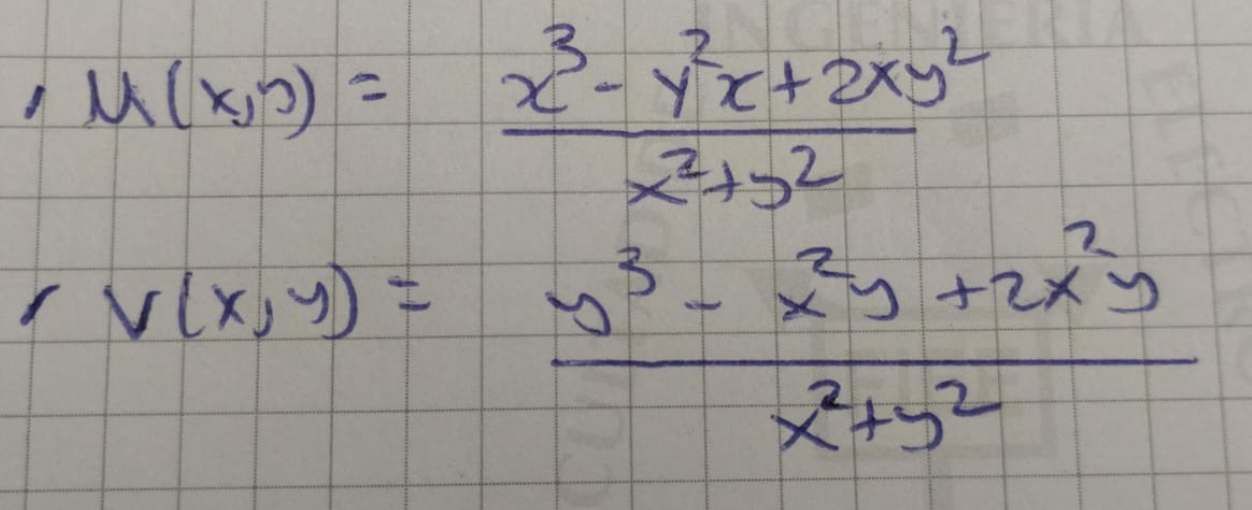 u(x,y) = \frac{x^3 - y^2x + 2xy^2}{x^2+y^2}
v(x,y) = \frac{y^3 - x^2y + 2x^2y}{x^2+y^2}